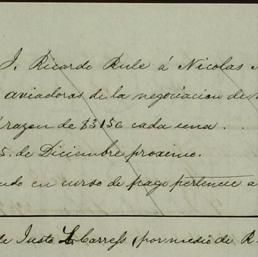 J. Ricardo Rule á Nicolas
aviadoras de la negociacion de
razon de $3156 cada una . .
5. de Diciembre proximo.
en curso de pago pertenece a
de Justo L. Carresse (por medio de R.